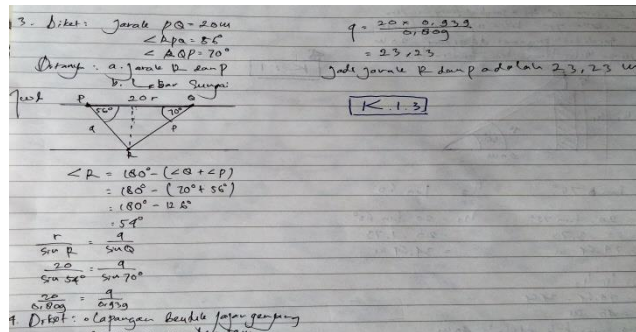 3. Diket: Jarak PQ = 20 m
∠RPQ = 56°
∠RQP = 70°
Ditanya: a. Jarak R dan P
b. Lebar Sungai
Jwb
P 20 r Q
56° 70°
q p
R
∠R = 180° - (∠Q + ∠P)
= 180° - (70° + 56°)
= 180° - 126°
= 54°
r/sin R = q/sin Q
20/sin 54° = q/sin 70°
20/0,809 = q/0,939
4. Diket: Lapangan bentuk jajar genjang
q = 20 x 0,939/0,809
= 23,23
Jadi Jarak R dan P adalah 23,23 m
K.1.3